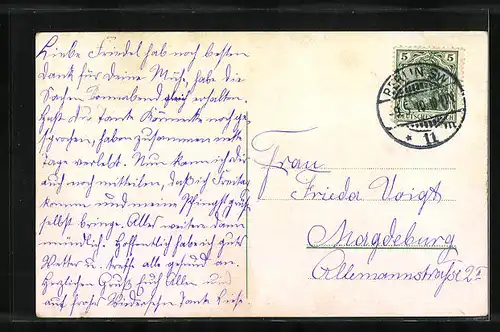 Liebe Friedel hab noch besten
Dank für Deine Mühe, habe die
Sachen Sonnabend gleich erhalten.
Hast du Tante Könneke noch ge-
sprochen, haben zusammen nette
Tage verlebt. Nun kann ich dir
auch noch mitteilen, daß ich Freitag
komme und meine Pfingstgrüße
selbst bringe. Alles weitere dann
mündlich. Hoffentlich habe ich gutes
Wetter u. treffe alle gesund an.
Herzlichen Gruß Euch Allen und
auf frohes Wiedersehn Tante Liese.
5 5
BERLIN S.W.
11
Frau
Frieda Voigt
Magdeburg
Allemannstraße 2a